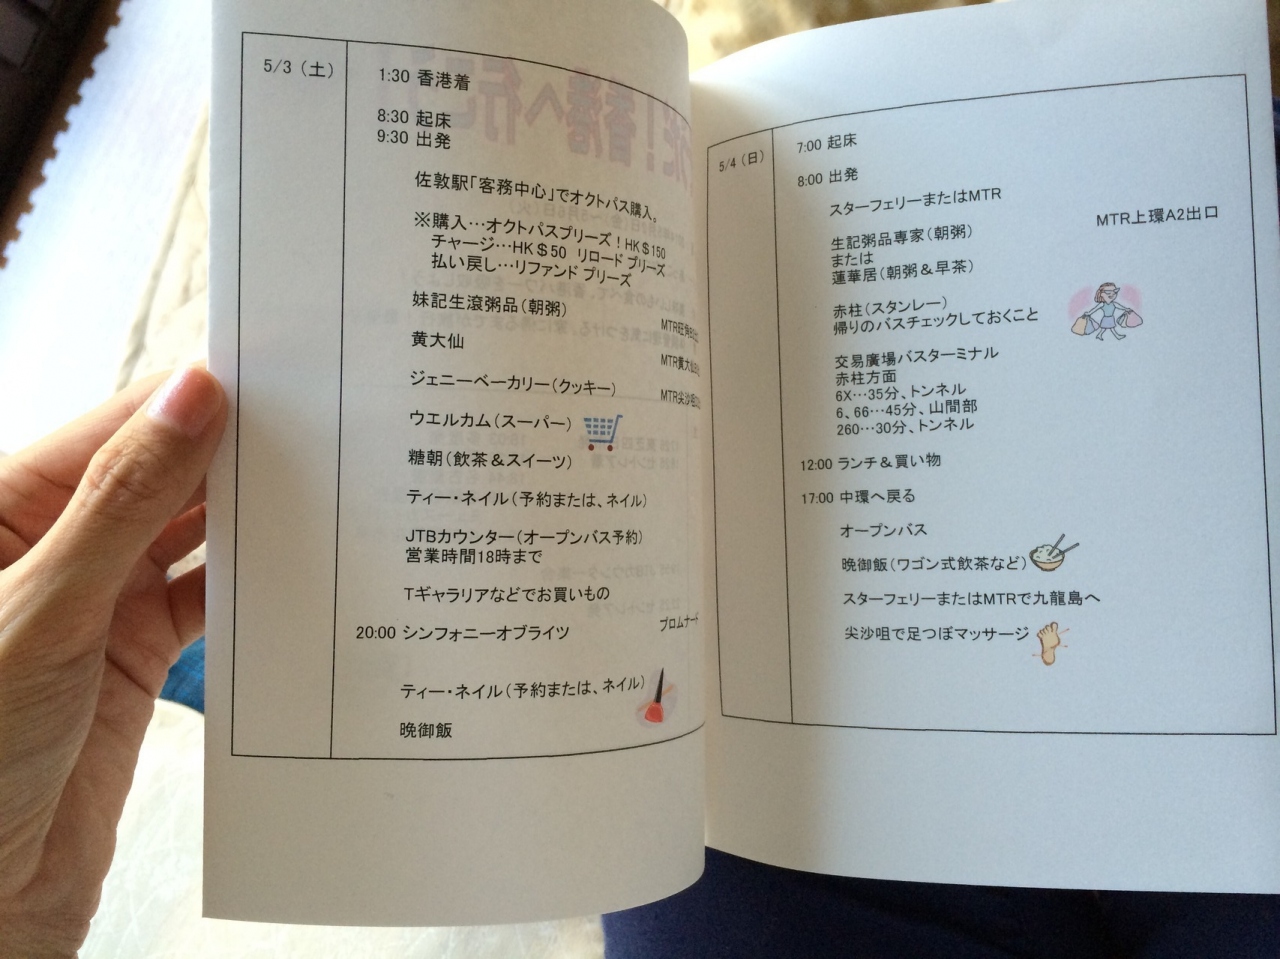 5/3（土）
1:30 香港着
8:30 起床
9:30 出発
佐敦駅「客務中心」でオクトパス購入。
※購入…オクトパスプリーズ！HK＄150
チャージ…HK＄50 リロード プリーズ
払い戻し…リファンド プリーズ
妹記生滾粥品（朝粥）
黄大仙
MTR黄大仙
ジェニーベーカリー（クッキー）
MTR尖沙咀
ウエルカム（スーパー）
糖朝（飲茶＆スイーツ）
ティー・ネイル（予約または、ネイル）
JTBカウンター（オープンバス予約）
営業時間18時まで
Tギャラリアなどでお買いもの
20:00 シンフォニーオブライツ
プロムナード
ティー・ネイル（予約または、ネイル）
晩御飯
5/4（日）
7:00 起床
8:00 出発
スターフェリーまたはMTR
MTR上環A2出口
生記粥品専家（朝粥）
または
蓮華居（朝粥＆早茶）
赤柱（スタンレー）
帰りのバスチェックしておくこと
交易廣場バスターミナル
赤柱方面
6X…35分、トンネル
6、66…45分、山間部
260…30分、トンネル
12:00 ランチ＆買い物
17:00 中環へ戻る
オープンバス
晩御飯（ワゴン式飲茶など）
スターフェリーまたはMTRで九龍島へ
尖沙咀で足つぼマッサージ